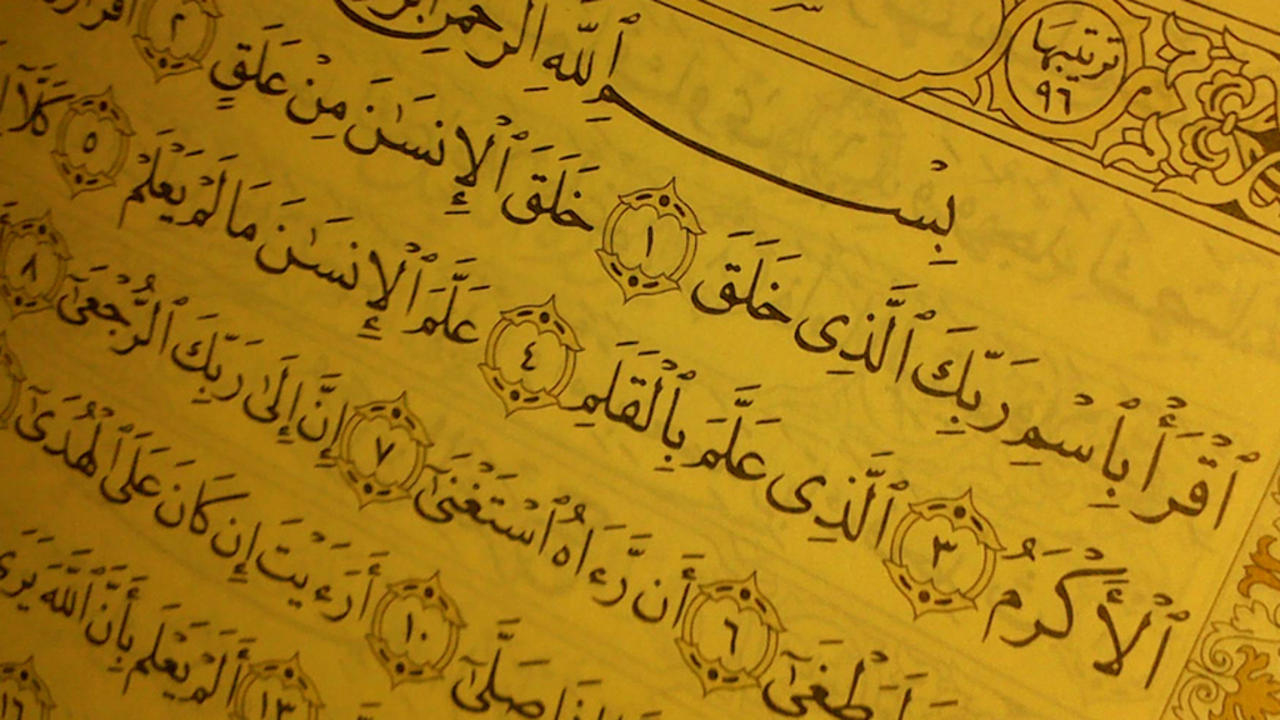 ترتيبها
٩٦
بِسْمِ ٱللَّهِ ٱلرَّحْمَٰنِ
ٱقْرَأْ بِٱسْمِ رَبِّكَ ٱلَّذِى خَلَقَ ١ خَلَقَ ٱلْإِنسَٰنَ مِنْ عَلَقٍ ٢
ٱلْأَكْرَمُ ٣ ٱلَّذِى عَلَّمَ بِٱلْقَلَمِ ٤ عَلَّمَ ٱلْإِنسَٰنَ مَا لَمْ يَعْلَمْ ٥ كَلَّآ
لَيَطْغَىٰٓ ٦ أَن رَّءَاهُ ٱسْتَغْنَىٰٓ ٧ إِنَّ إِلَىٰ رَبِّكَ ٱلرُّجْعَىٰٓ ٨
صَلَّىٰٓ ١٠ أَرَءَيْتَ إِن كَانَ عَلَى ٱلْهُدَىٰٓ
١٣ أَلَمْ يَعْلَم بِأَنَّ ٱللَّهَ يَرَىٰ
١٦